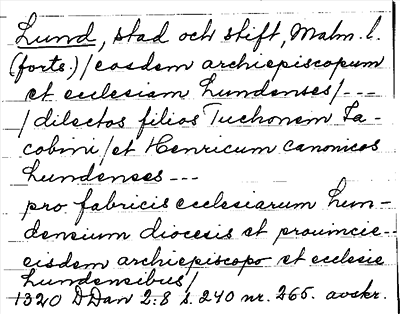 Lund, stad och stift, Malm. l.
(forts.) / eosdem archiepiscopum
et ecclesiam Lundenses / ---
/ dilectos filios Tuchonem Ja-
cobini / et Henricum canonicos
Lundenses ---
pro fabricis ecclesiarum Lun-
densium diocesis et prouincie --
eisdem archiepiscopo et ecclesie
Lundensibus /
1320 DDan 2:8 s. 240 nr. 265. avskr.